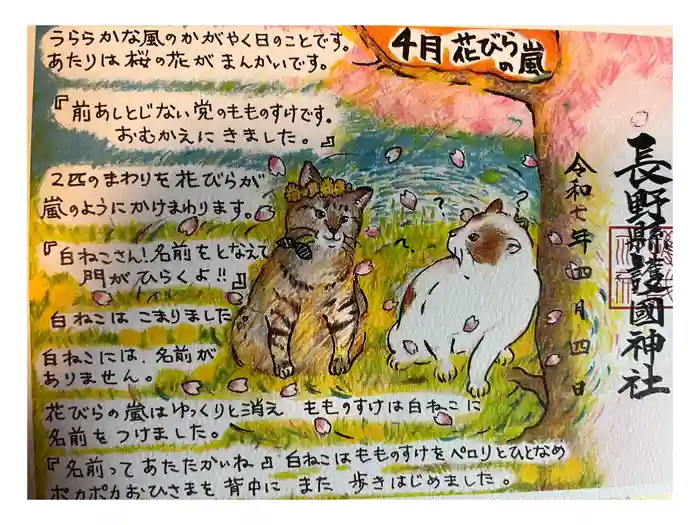 4月 花びらの嵐
うららかな風のかがやく日のことです。
あたりは桜の花がまんかいです。
『前あしとじない党のもものすけです。
おむかえにきました。』
2匹のまわりを花びらが
嵐のようにかけまわります。
『白ねこさん!名前をとなえて
門がひらくよ!!』
白ねこはこまりました
白ねこには、名前が
ありません。
花びらの嵐はゆっくりと消え もものすけは白ねこに
名前をつけました。
『名前ってあたたかいね』白ねこはもものすけをペロリとひとなめ
ポカポカおひさまを背中にまた歩きはじめました。
?
?
?
長野縣護國神社
令和七年四月四日